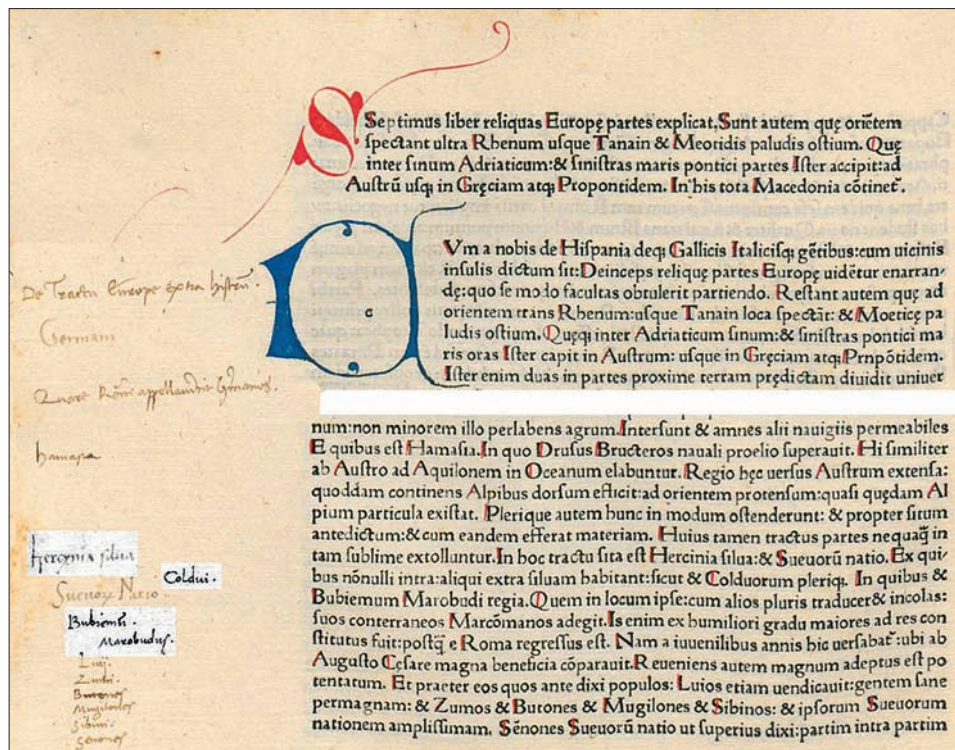 Septimus liber reliquas Europę partes explicat, Sunt autem quę oriētem
spectant ultra Rhenum usque Tanain & Meotidis paludis ostium. Quę
inter sinum Adriaticum: & sinistras maris pontici partes Ister accipit: ad
Austrū usq; in Gręciam atq; Propontidem. In his tota Macedonia cōtinet᷑.
CVm a nobis de Hispania deq; Gallicis Italicisq; gētibus: cum uicinis
insulis dictum sit: Deinceps relique partes Europę uidētur enarran-
dę: quo se modo facultas obtulerit partiendo. Restant autem quę ad
orientem trans Rhenum: usque Tanain loca spectāt: & Moeticę pa
ludis ostium. Quęq; inter Adriaticum sinum: & sinistras pontici ma
ris oras Ister capit in Austrum: usque in Gręciam atq; Prnpōtidem.
Ister enim duas in partes proxime terram prędictam diuidit uniuer
De Tractu Europe extra histrū.
Germani
Quare Rōni appellauerūt Germanos.
hamasa
num: non minorem illo perlabens agrum. Intersunt & amnes alii nauigiis permeabiles
E quibus est Hamasia. In quo Drusus Bructeros nauali proelio superauit. Hi similiter
ab Austro ad Aquilonem in Oceanum elabuntur. Regio hęc uersus Austrum extensa:
quoddam continens Alpibus dorsum efficit: ad orientem protensum: quasi quędam Al
pium particula existat. Plerique autem hunc in modum ostenderunt: & propter situm
antedictum: & cum eandem efferat materiam. Huius tamen tractus partes nequaq̄ in
tam sublime extolluntur. In hoc tractu sita est Hercinia silua: & Sueuorū natio. Ex qui
bus nōnulli intra: aliqui extra siluam habitant: sicut & Colduorum pleriq;. In quibus &
Bubiemum Marobudi regia. Quem in locum ipse: cum alios pluris traducer& incolas:
suos conterraneos Marcōmanos adegit. Is enim ex humiliori gradu maiores ad res con
stitutus fuit: postq̄ e Roma regressus est. Nam a iuuenilibus annis hic uersabat᷑: ubi ab
Augusto Cęsare magna beneficia cōparauit. Reueniens autem magnum adeptus est po
tentatum. Et praeter eos quos ante dixi populos: Luios etiam uendicauit: gentem sane
permagnam: & Zumos & Butones & Mugilones & Sibinos: & ipsorum Sueuorum
nationem amplissimam. Sēnones Sueuorū natio ut superius dixi: partim intra partim
Hercynia silua
Coldui.
Sueuorum Natio.
Bubiemū.
Marobudus.
Luij.
Zumi.
Butones
Mugilones
Sibini.
Senones